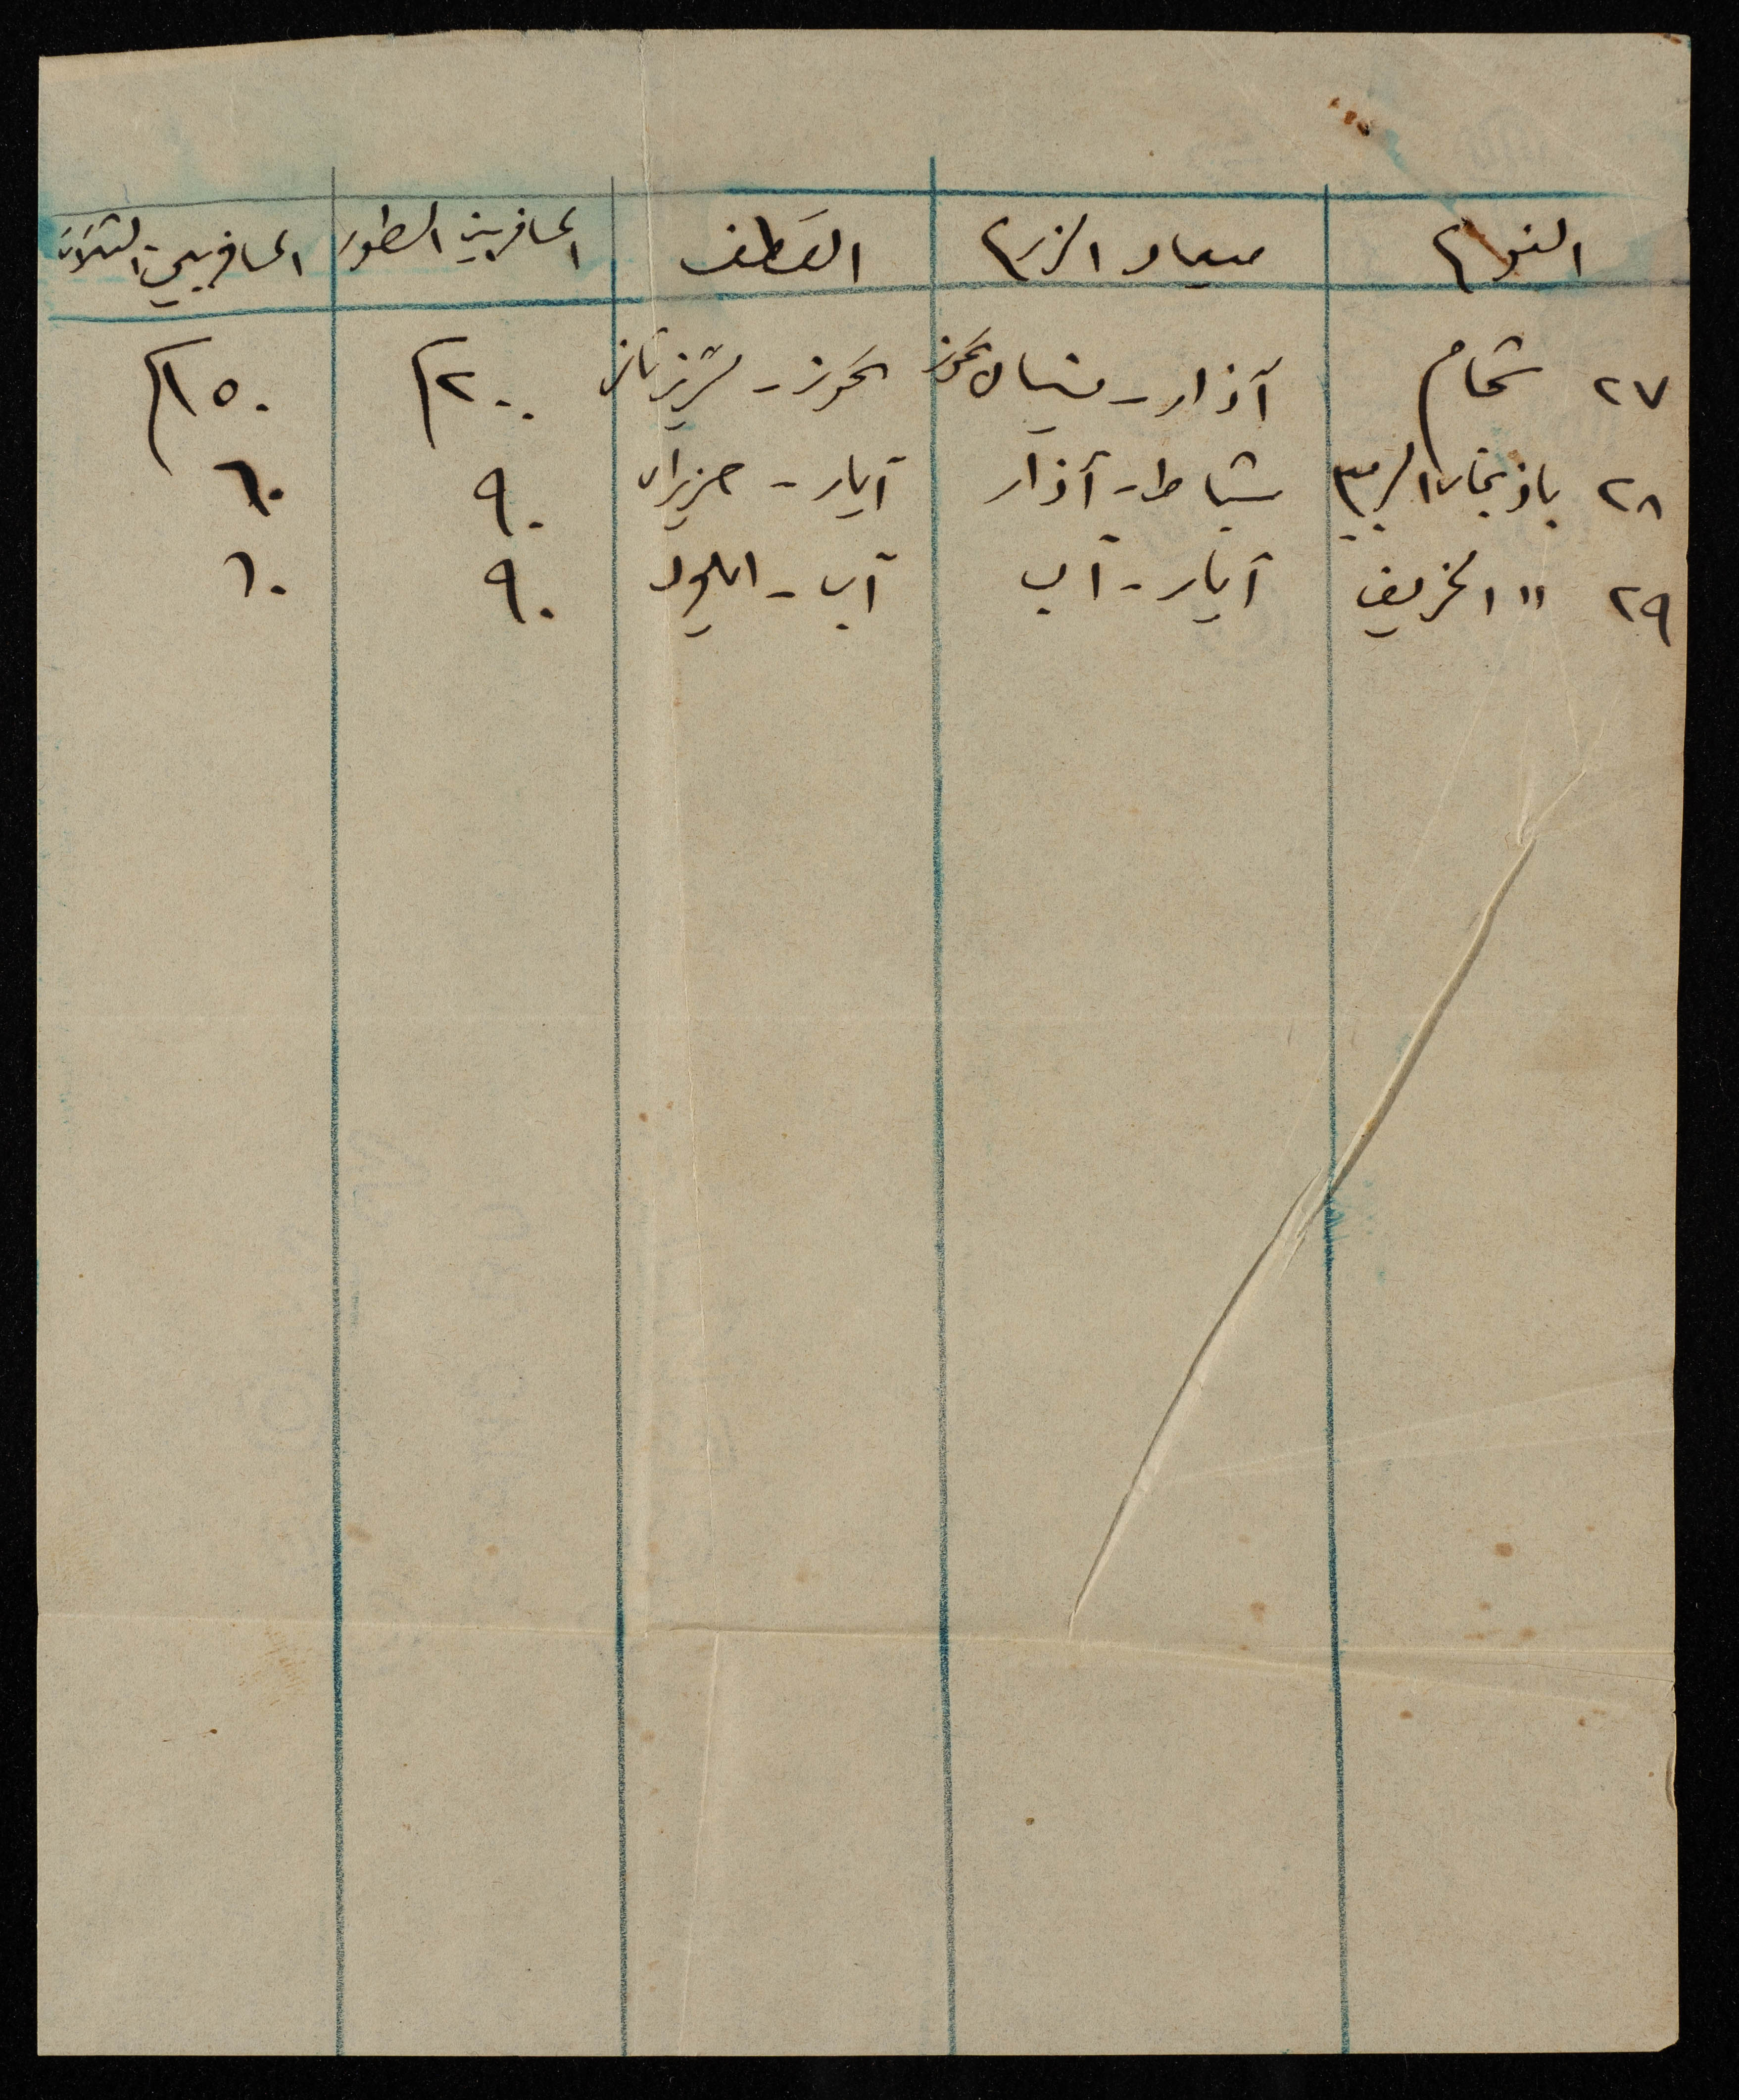 النوع ميعاد الزرع القطف المسافة بين السطور المسافة بين الشتلات
٢٧ شمام آذار - نيسان تموز تموز - تشرين ثاني ٢٠٠سم ١٥٠سم
٢٨ باذنجان الربيع شباط - آذار آيار - حزيران ٩٠ ٦٠
٢٩ " الخريف آيار - آب آب - ايلول ٩٠ ٦٠